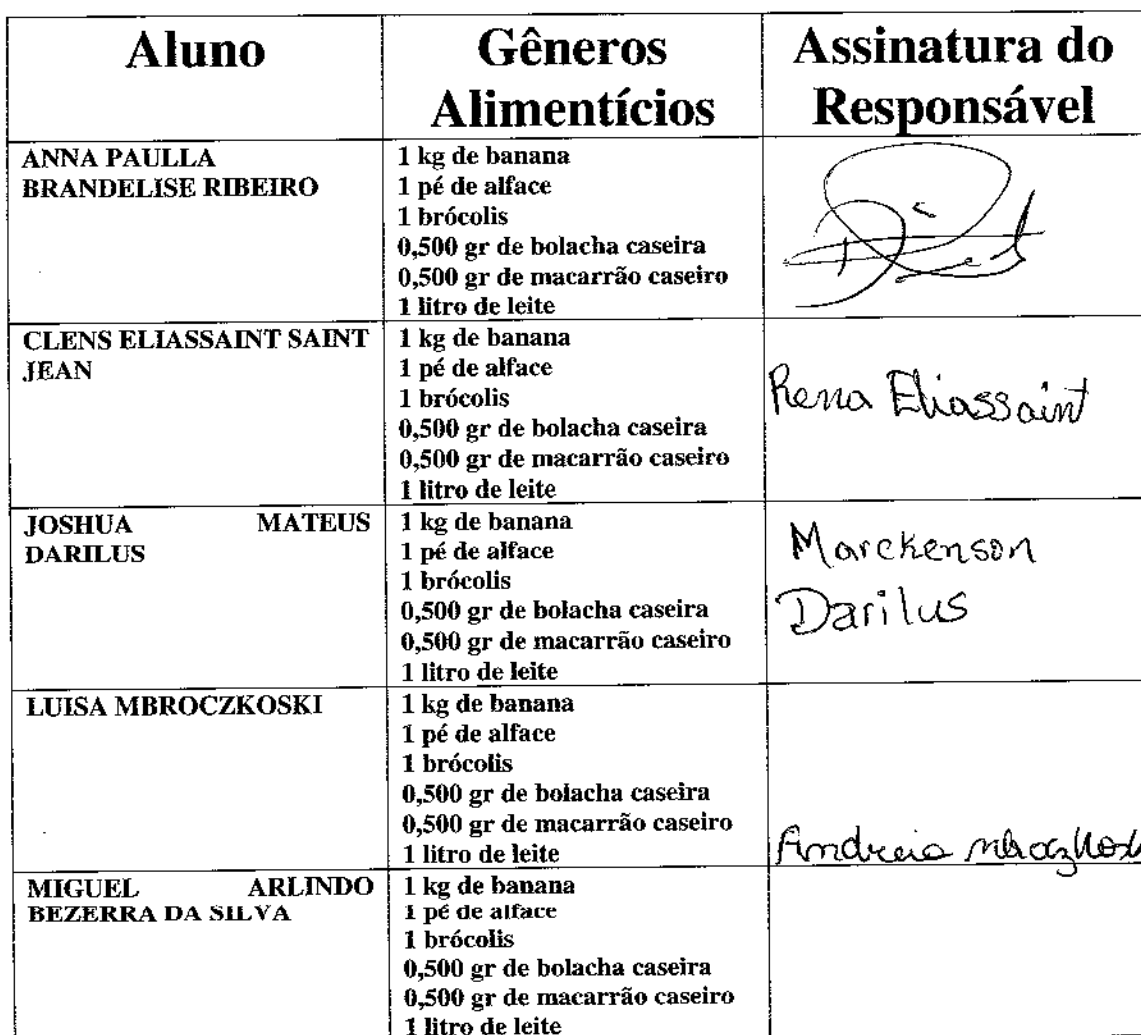 Aluno
Gêneros
Alimentícios
Assinatura do
Responsável
ANNA PAULLA
BRANDELISE RIBEIRO
1 kg de banana
1 pé de alface
1 brócolis
0,500 gr de bolacha caseira
0,500 gr de macarrão caseiro
1 litro de leite
CLENS ELIASSAINT SAINT
JEAN
1 kg de banana
1 pé de alface
1 brócolis
0,500 gr de bolacha caseira
0,500 gr de macarrão caseiro
1 litro de leite
Rena Eliassaint
JOSHUA MATEUS
DARILUS
1 kg de banana
1 pé de alface
1 brócolis
0,500 gr de bolacha caseira
0,500 gr de macarrão caseiro
1 litro de leite
Marckenson
Darilus
LUISA MBROCZKOSKI
1 kg de banana
1 pé de alface
1 brócolis
0,500 gr de bolacha caseira
0,500 gr de macarrão caseiro
1 litro de leite
Andreia
MIGUEL ARLINDO
BEZERRA DA SILVA
1 kg de banana
1 pé de alface
1 brócolis
0,500 gr de bolacha caseira
0,500 gr de macarrão caseiro
1 litro de leite